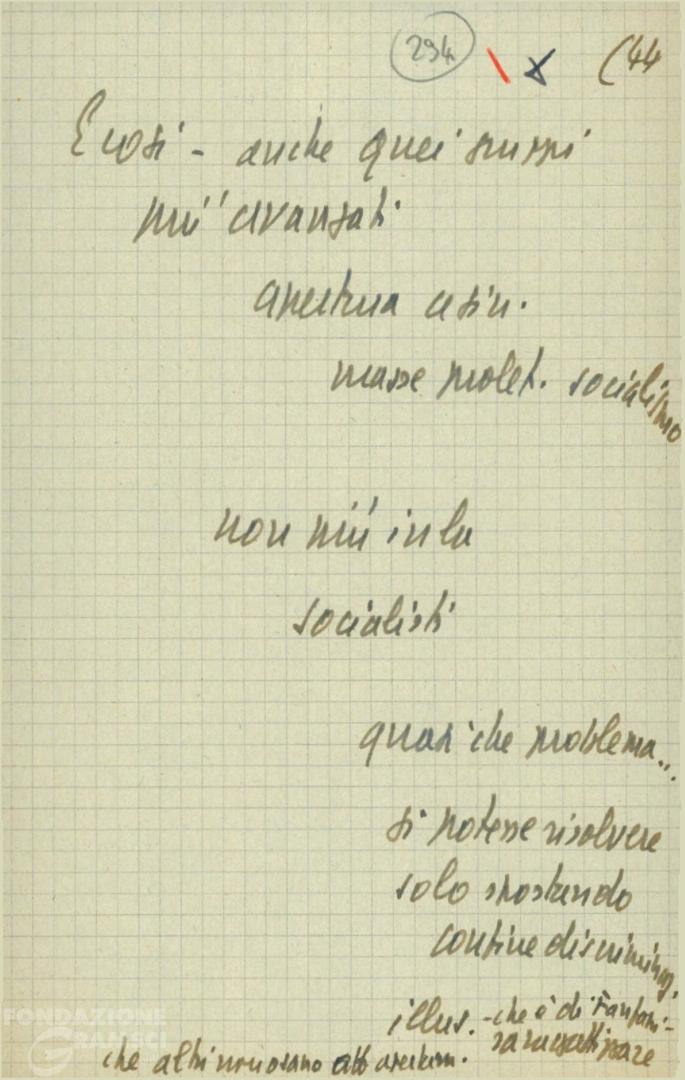 294 (44
E così - anche quei gruppi
più avanzati
apertura a sin.
masse prolet. socialismo
non più in la
socialisti
quasi che problema...
si potesse risolvere
solo spostando
confine discriminaz.
illus. - che è di Fanfani -
che altri non osano apertura.
FONDAZIONE
GRAMSCI